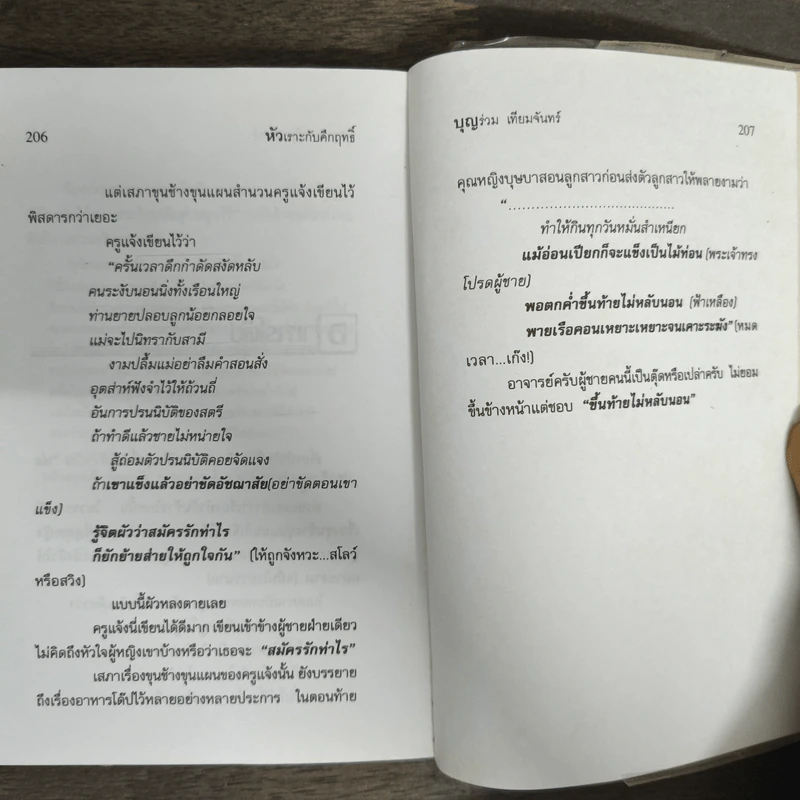 206
หัวเราะกับคึกฤทธิ์
แต่เสภาขุนช้างขุนแผนสำนวนครูแจ้งเขียนไว้
พิสดารกว่าเยอะ
ครูแจ้งเขียนไว้ว่า
“ครั้นเวลาดึกกำดัดสงัดหลับ
คนระงับนอนนิ่งทั้งเรือนใหญ่
ท่านยายปลอบลูกน้อยกลอยใจ
แม่จะไปนิทรากับสามี
งามปลื้มแม่อย่าลืมคำสอนสั่ง
อุตส่าห์ฟังจำไว้ให้ถ้วนถี่
อันการปรนนิบัติของสตรี
ถ้าทำดีแล้วชายไม่หน่ายใจ
สู้ถ่อมตัวปรนนิบัติคอยจัดแจง
ถ้าเขาแข็งแล้วอย่าขัดอัชฌาสัย(อย่าขัดตอนเขา
แข็ง)
รู้จิตผัวว่าสมัครรักท่าไร
ก็ยักย้ายส่ายให้ถูกใจกัน” (ให้ถูกจังหวะ...สโลว์
หรือสวิง)
แบบนี้ผัวหลงตายเลย
ครูแจ้งนี่เขียนได้ดีมาก เขียนเข้าข้างผู้ชายฝ่ายเดียว
ไม่คิดถึงหัวใจผู้หญิงเขาบ้างหรือว่าเธอจะ “สมัครรักท่าไร”
เสภาเรื่องขุนช้างขุนแผนของครูแจ้งนั้น ยังบรรยาย
ถึงเรื่องอาหารโด๊ปไว้หลายอย่างหลายประการ ในตอนท้าย
บุญร่วม เทียมจันทร์
207
คุณหญิงบุษบาสอนลูกสาวก่อนส่งตัวลูกสาวให้พลายงามว่า
“........................................
ทำให้กินทุกวันหมั่นสำเหนียก
แม้อ่อนเปียกก็จะแข็งเป็นไม้ท่อน (พระเจ้าทรง
โปรดผู้ชาย)
พอตกค่ำขึ้นท้ายไม่หลับนอน (ฟ้าเหลือง)
พายเรือคอนเหยาะเหยาะจนเคาะระฆัง” (หมด
เวลา...เก๊ง!)
อาจารย์ครับผู้ชายคนนี้เป็นตุ๊ดหรือเปล่าครับ ไม่ยอม
ขึ้นข้างหน้าแต่ชอบ “ขึ้นท้ายไม่หลับนอน”